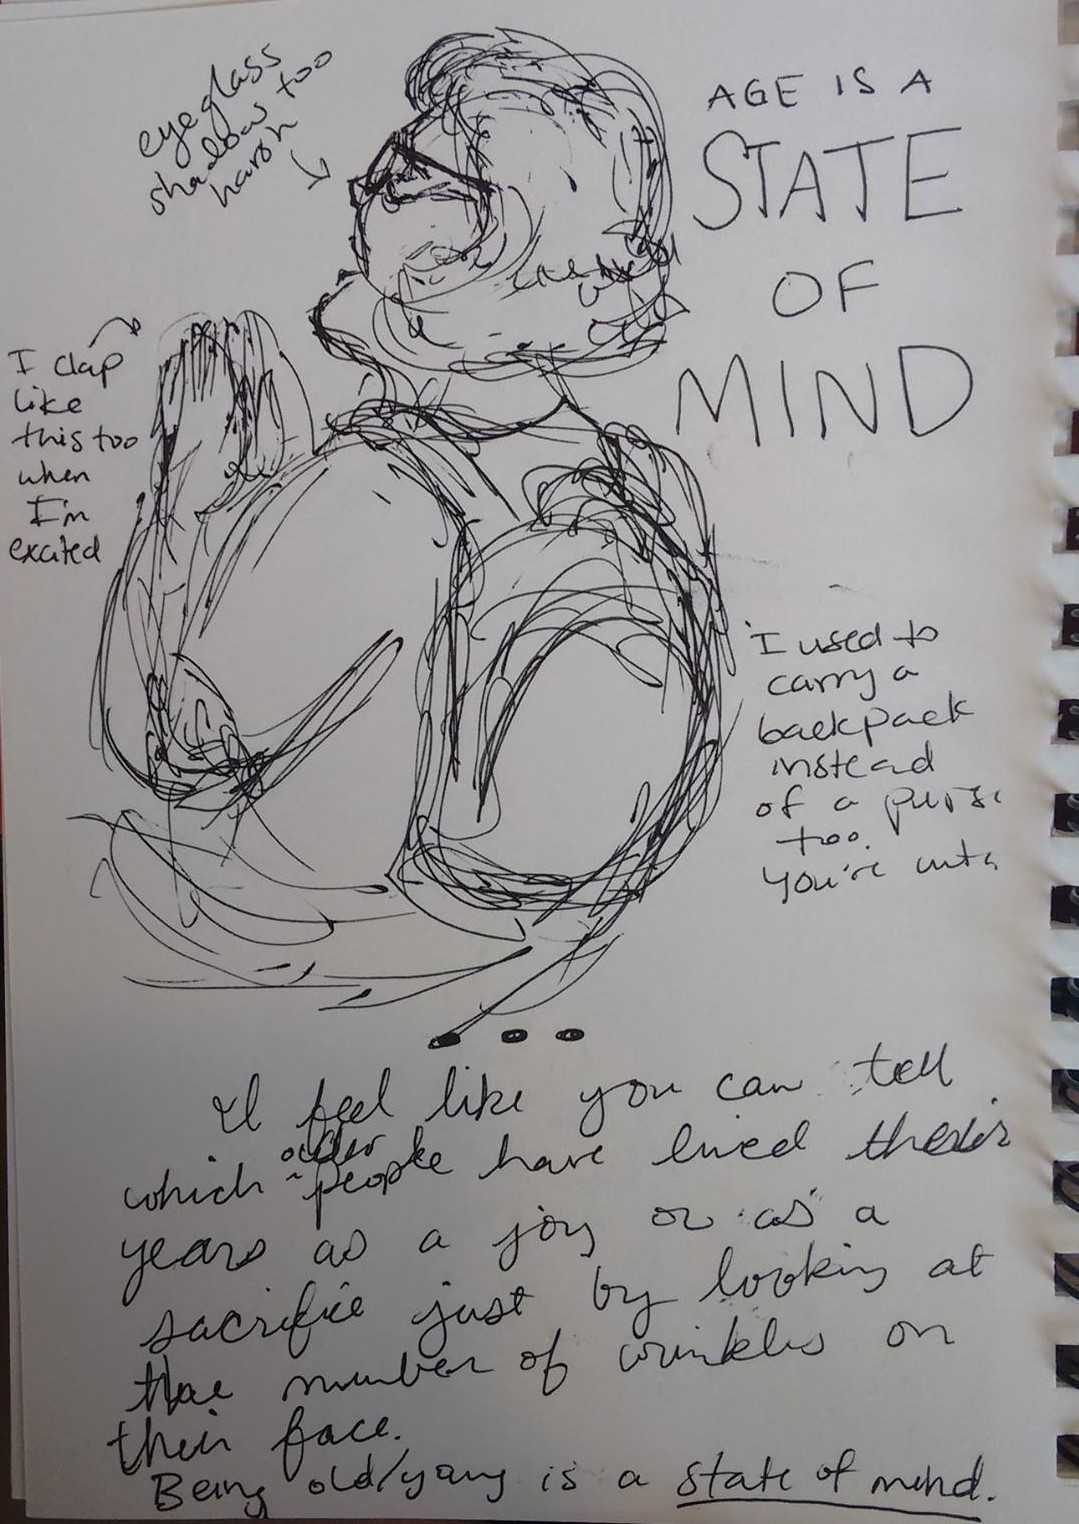 eyeglass
shadow too
harsh
AGE IS A
STATE
OF
MIND
I clap
like
this too
when
I'm
excited
I used to
carry a
backpack
instead
of a purse
too.
You're
I feel like you can tell
which older people have lived their
years as a joy or as a
sacrifice just by looking at
the number of wrinkles on
their face.
Being old/young is a state of mind.